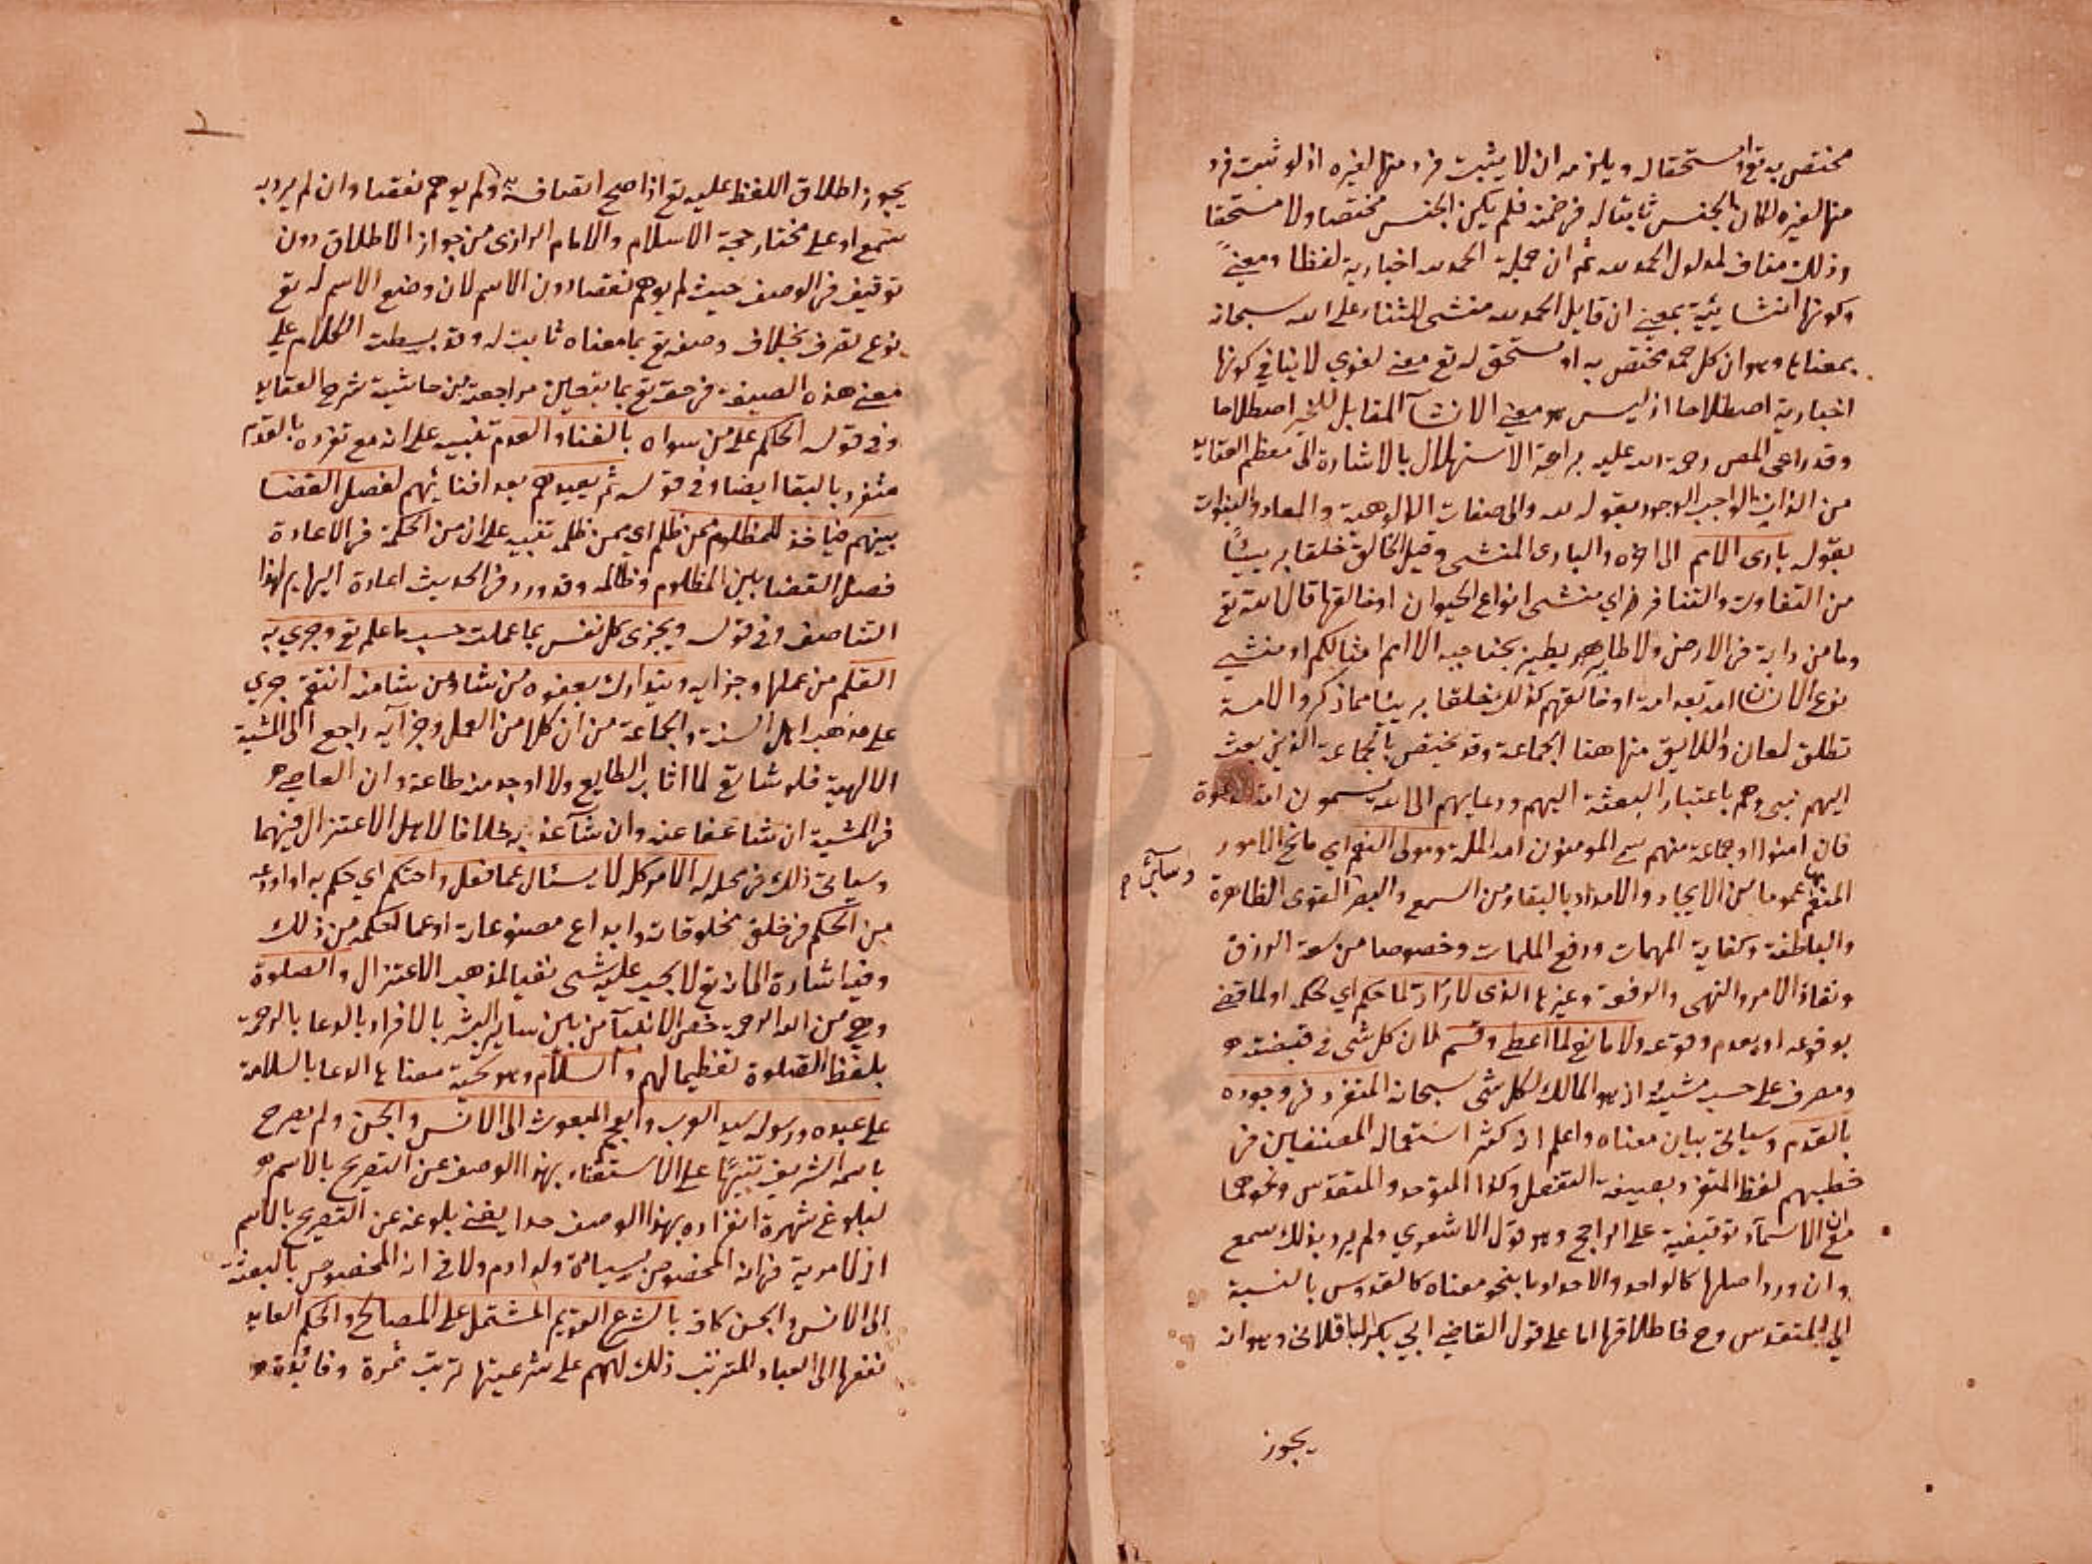 مختص به تع او مستحقا له ويلزمه ان لا يثبت فرد منها لغيره اذ لو ثبت فرد
منها لغيره لكان الجنس ثابتا له في ضمنه فلم يكن الجنس مختصا ولا مستحقا
وذلك مناف لمدلول الحمد لله ثم ان جملة الحمد لله اخبارية لفظا ومعنىً
وكونها انشائية بمعنى ان قايل الحمد لله منشى للثناء على الله سبحانه
بمعناها وهو ان كل حمد مختص به او مستحق له تع معنى لغوي لا ينافي كونها
اخبارية اصطلاحا اذ ليس هو معنى الانشآ المقابل للخبر اصطلاحا
وقد راعى المص رحمة الله عليه براعة الاستهلال بالاشارة الى معظم العقايد
من الذات الواجب الوجود بقوله لله والى صفات الالوهية والمعاد والنبوات
بقوله بارى الامم الى اخره والبارى المنشى وقيل الخالق خلقا بريئًا
من التفاوت والتنافر اي منشى انواع الحيوان او خالقها قال الله تع
وما من دابة في الارض ولا طاير يطير بجناحيه الا امم امثالكم او منشى
نوع الانسان امة بعد امة او خالقهم كذلك خلقا بريئا مما ذكر والامة
تطلق لمعان واللايق منها هنا الجماعة وقد تختص بالجماعة الذين بعث
اليهم نبي وهم باعتبار البعثة اليهم ودعايهم الى الله يسمون امة الدعوة
فان امنوا او جماعة منهم سمي المومنون امة الملة ومولى النعم اي مانح الامور
المنعم بها عموما من الايجاد والامداد بالبقاء ومن السمع والبصر وسائر القوى الظاهرة
والباطنة وكفاية المهمات ودفع الملمات وخصوصا من سعة الرزق
ونفاذ الامر والنهى والرفعة وغيرها الذى لا رادّ لما حكم اي لحكمه او لما قضى
بوقوعه او بعدم وقوعه ولا مانع لما اعطى وقسم لان كل شى في قبضته هو
ومصرف على حسب مشيئته اذ هو المالك لكل شى سبحانه المنفرد في وجوده
بالقدم وسياتي بيان معناه واعلم انه كثر استعمال المصنفين في
خطبهم لفظ المتفرد بصيغة التفعل وكذا المتوحد والمتقدس ونحوهما
مع ان الاسمآء توقيفية على الراجح وهو قول الاشعري ولم يرد بذلك سمع
وان ورد اصلها كالواحد والاحد او ما بنحو معناه كالقدوس بالنسبة
الى المتقدس وح فاطلاقها اما على قول القاضي ابي بكر الباقلانى وهو انه
يجوز
يجوز اطلاق اللفظ عليه تع اذا صح اتصافه به ولم يوهم نقصا وان لم يرد به
سمع او على مختار حجة الاسلام والامام الرازى من جواز الاطلاق دون
توقيف في الوصف حيث لم يوهم نقصا دون الاسم لان وضع الاسم له تع
نوع تصرف بخلاف وصفه تع بما معناه ثابت له وقد بسطت الكلام على
معنى هذه الصيغة في حقه تع بما يتعين مراجعته من حاشية شرح العقايد
وفي قوله الحكم على من سواه بالفناء والعدم تنبيه على انه مع تفرده بالقدم
متفرد بالبقا ايضا وفي قوله ثم يعيدهم بعد افنائهم لفصل القضا
بينهم فياخذ للمظلوم ممن ظلم اي ممن ظلمه تنبيه على ان من الحكمة في الاعادة
فصل القضا بين المظلوم وظالمه وقد ورد في الحديث اعادة البهايم لهذا
التناصف وفي قوله ويجزى كل نفس بما عملت حسب ما علم تع وجرى به
القلم من عملها وجزايه ويتدارك بعفوه من شاء ومن شا منه انتقم جري
على مذهب اهل السنة والجماعة من ان كلا من العمل وجزآيه راجع الى المشية
الالهية فلو شا تع لما اثاب الطايع ولا اوجد منه طاعة وان العاصي هو
في المشية ان شا عفا عنه وان شآ عذبه خلافا لاهل الاعتزال فيهما
وسياتي ذلك في محله له الامر كله لا يسئال عما فعل واحتكم اي حكم به او اودعه
من الحكم في خلق مخلوقاته وابداع مصنوعاته او عما احكمه من ذلك
وفيه اشارة الى انه تع لا يجب عليه شى نفيا لمذهب الاعتزال والصلوة
وهي من الله الرحمة خص الانبيآ من بين ساير البشر بالافراد بالدعا بالرحمة
بلفظ الصلوة تعظيما لهم والسلام وهو تحية معناها الدعا بالسلامة
على عبده ورسوله سيد العرب والعجم المبعوث الى الانس والجن ولم يصرح
باسمه الشريف تنبيهًا على الاستغناء بهذا الوصف عن التصريح بالاسم هو
لبلوغ شهرة انفراده بهذا الوصف حدا يغنى بلوغه عن التصريح بالاسم
اذ لا مرية في انه المخصوص بسيادة ولد ادم ولا في انه المخصوص بالبعثة
الى الانس والجن كافة بالشرع القويم المشتمل على المصالح والحكم العايد
نفعها الى العباد المترتب ذلك لهم على شرعيتها ترتب ثمرة وفائدة هو